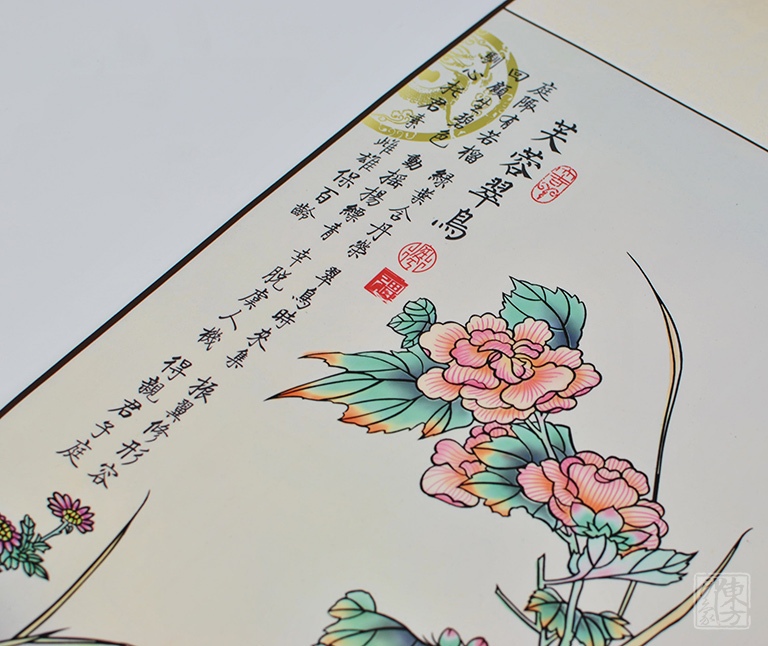 芙蓉翠鳥
庭陬有若榴 綠葉含丹榮 翠鳥時來集 振翼修形容
回顧生碧色 動搖揚縹青 幸脫虞人機 得親君子庭
馴心托君素 雌雄保百齡
東方